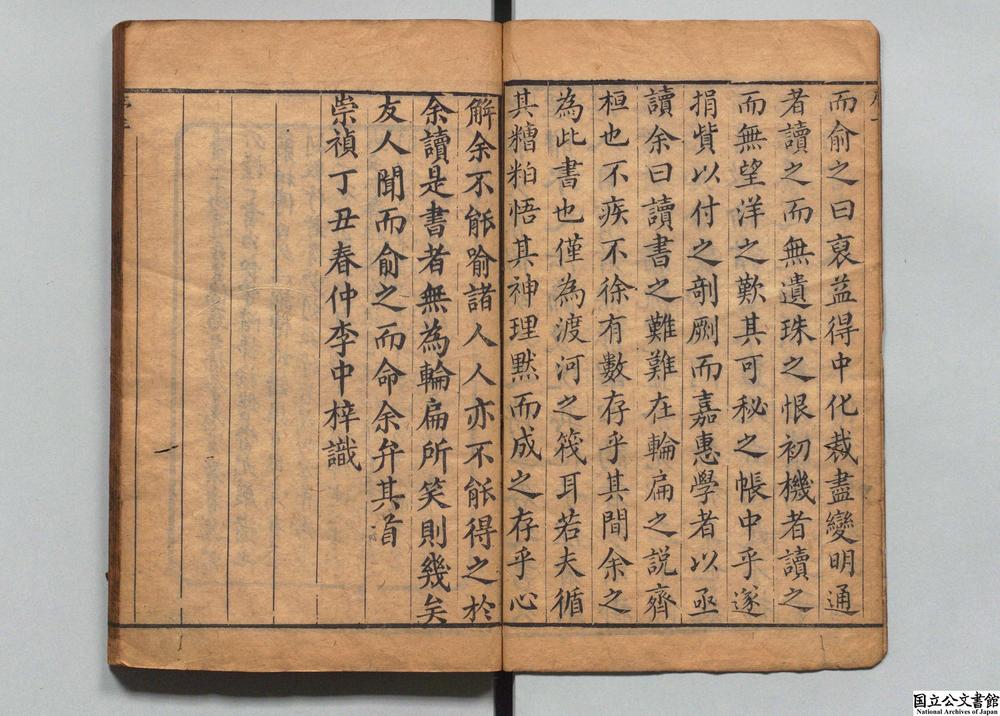 而俞之曰裒益得中化裁盡變明通
者讀之而無遺珠之恨初機者讀之
而無望洋之歎其可秘之帳中乎遂
捐貲以付之剞劂而嘉惠學者以亟
讀余曰讀書之難難在輪扁之説齊
桓也不疾不徐有數存乎其間余之
為此書也僅為渡河之筏耳若夫循
其糟粕悟其神理默而成之存乎心
解余不能喻諸人人亦不能得之於
余讀是書者無為輪扁所笑則幾矣
友人聞而俞之而命余弁其首
崇禎丁丑春仲李中梓識
国立公文書館
National Archives of Japan